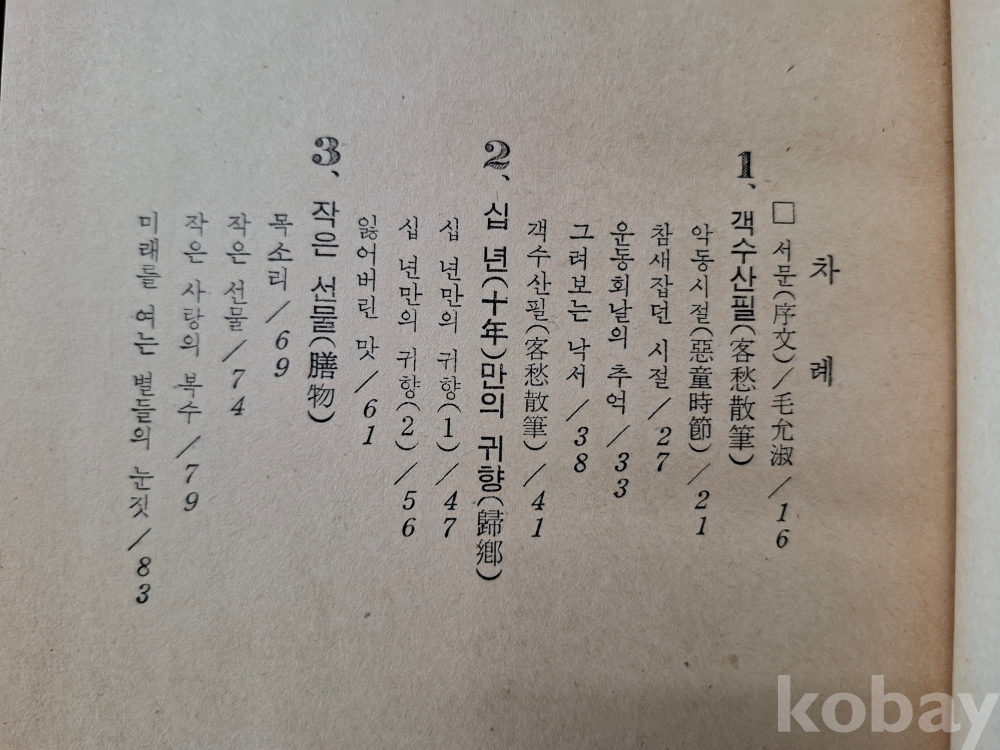 차 례
□ 서문(序文)/毛允淑/16
1、객수산필(客愁散筆)
악동시절(惡童時節)/21
참새잡던 시절/27
운동회날의 추억/33
그려보는 낙서/38
객수산필(客愁散筆)/41
2、십 년(十年)만의 귀향(歸鄕)
십 년만의 귀향(1)/47
십 년만의 귀향(2)/56
잃어버린 맛/61
3、작은 선물(膳物)
목소리/69
작은 선물/74
작은 사랑의 복수/79
미래를 여는 별들의 눈짓/83
kobay